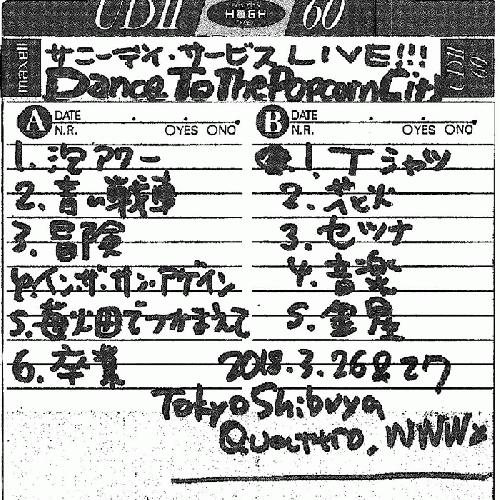 UDII HIGH 60
maxell
サニーデイ・サービス LIVE!!!
Dance To The Popcorn City
UDII 60
A DATE . .
N.R. OYES ONO
1. 泡アワー
2. 青い戦車
3. 冒険
4. イン・ザ・サン・アゲイン
5. 苺畑でつかまえて
6. 卒業
B DATE . .
N.R. OYES ONO
1. Tシャツ
2. 花火
3. セツナ
4. 音楽
5. 金星
2018.3.26&27
Tokyo Shibuya
Quattro, WWWx